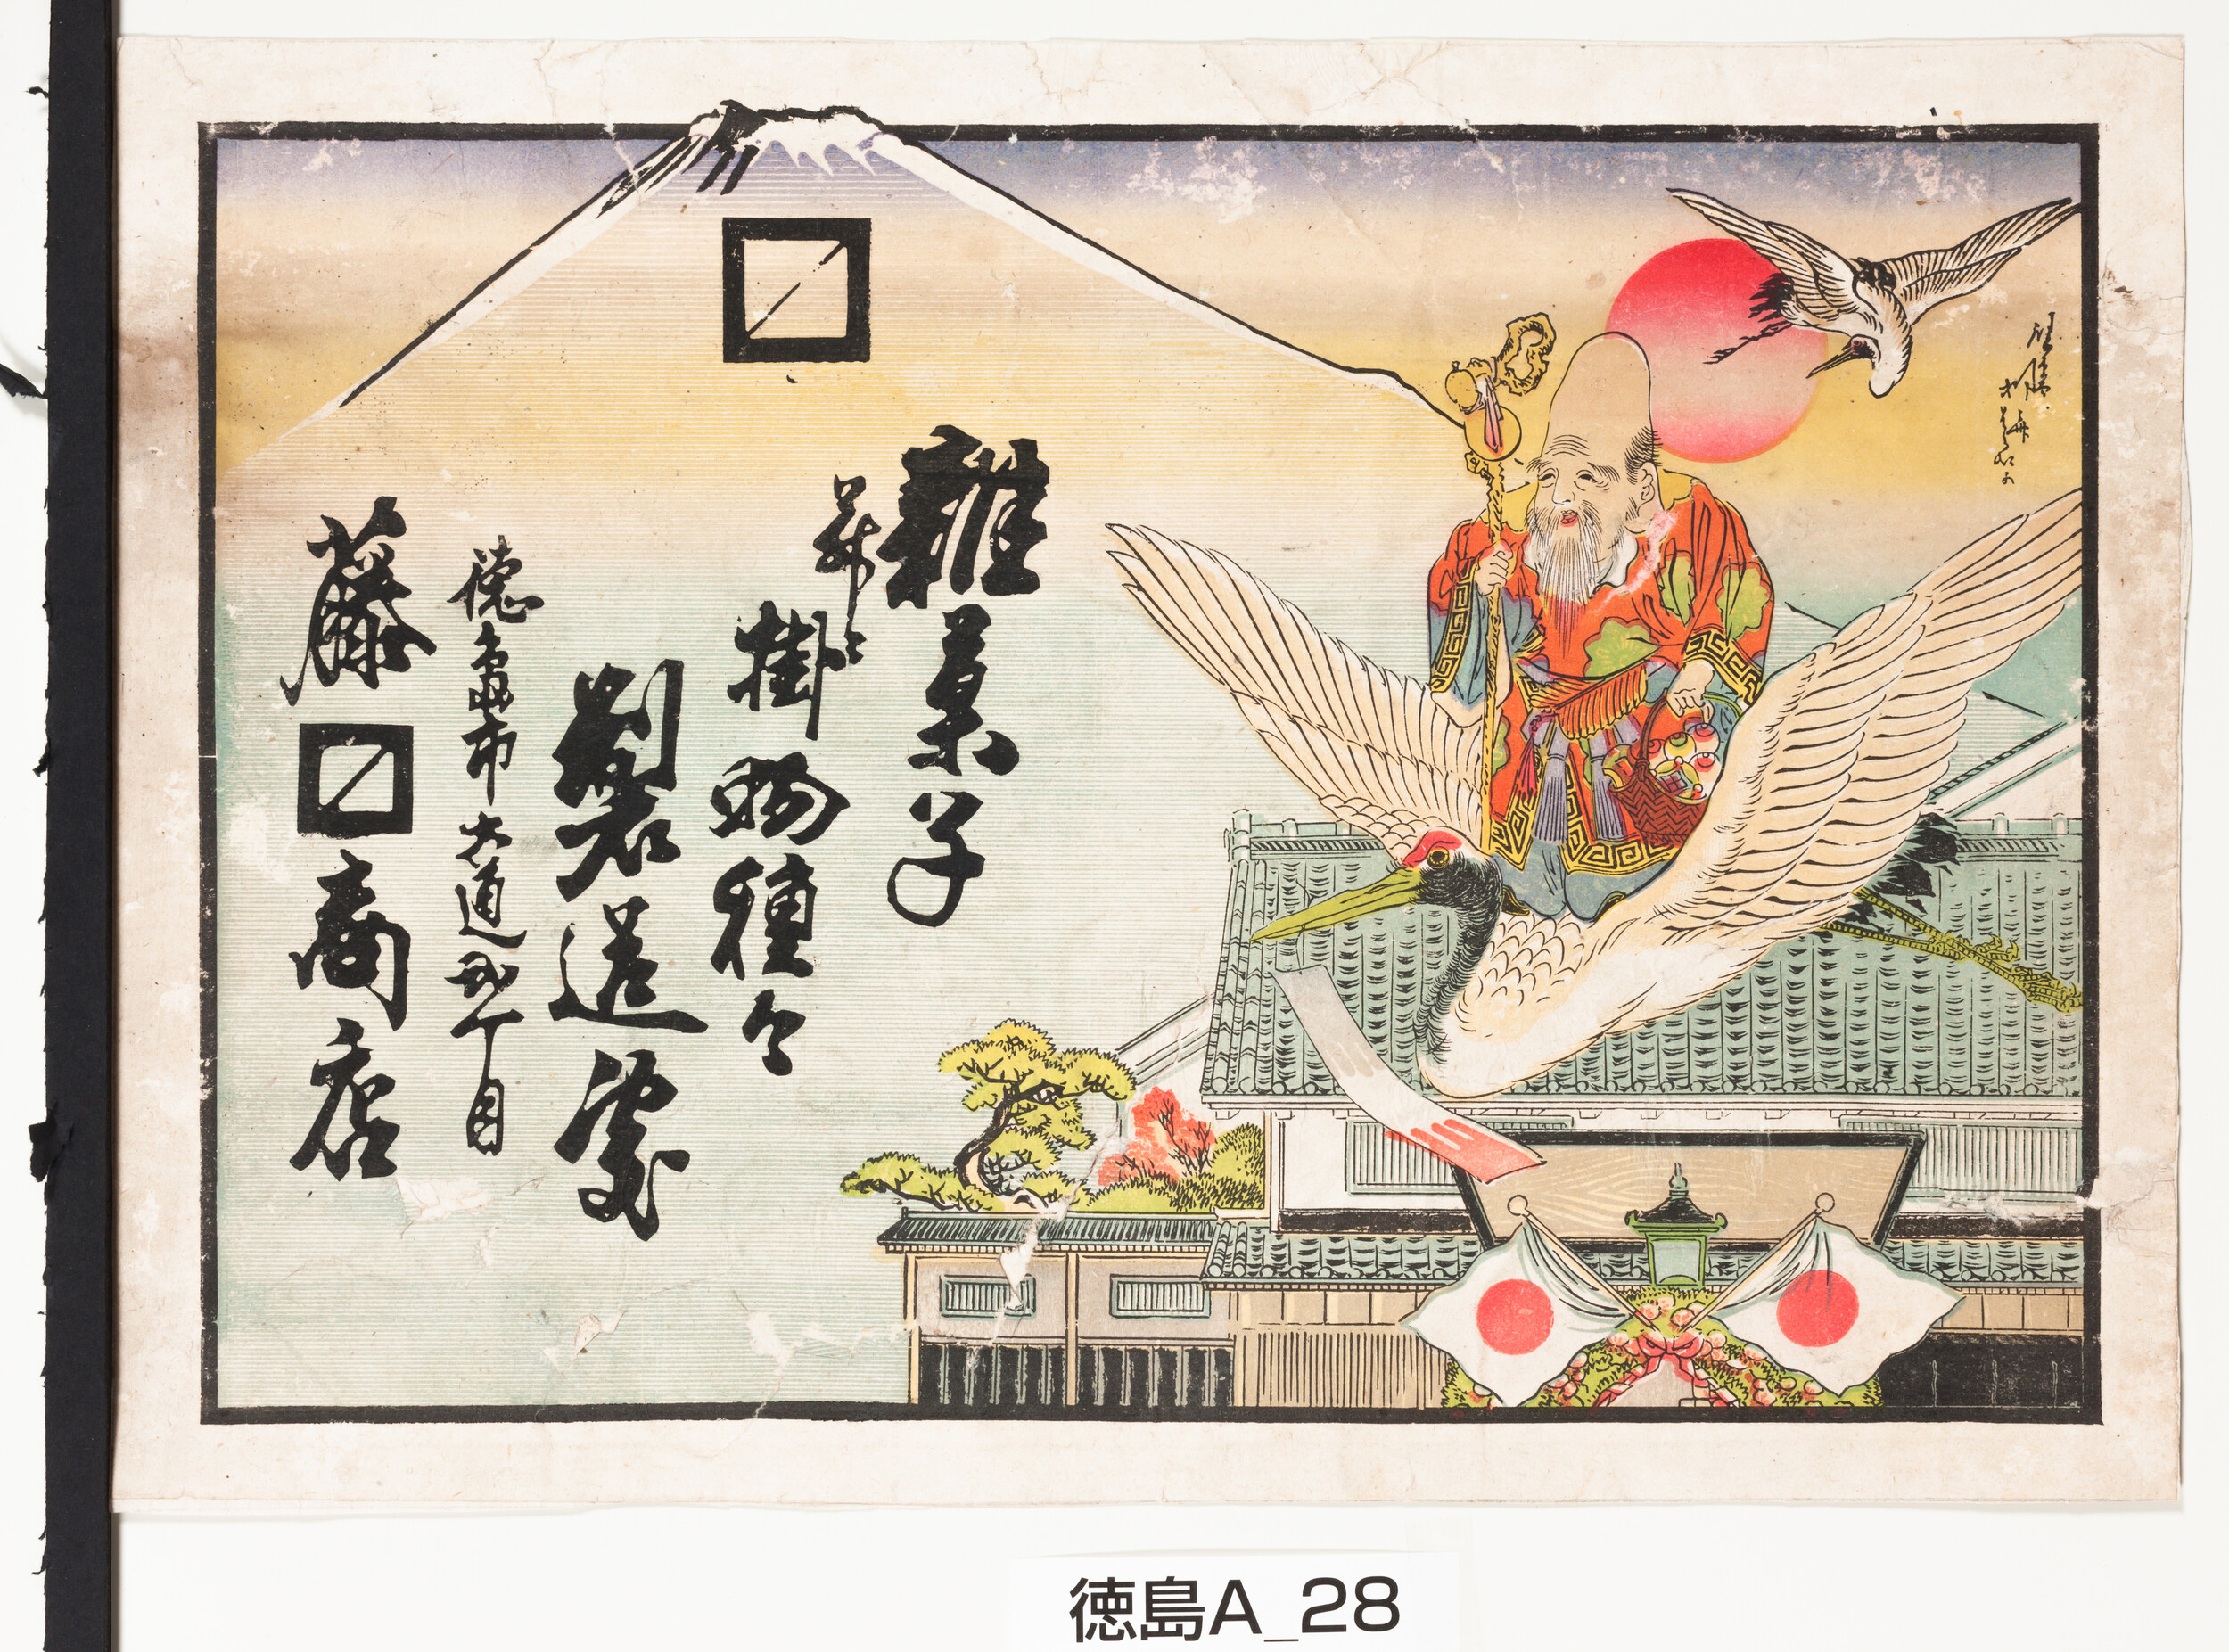 雑菓子
並ニ
掛物種々
製造処
徳島市大通弐丁目
藤
商店
徳島A_28